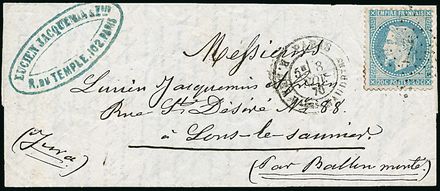 LUCIEN JACQUEMIN & FILS
R. DU TEMPLE, 102 PARIS
EMPIRE FRANÇAIS
20C POSTES 20C
Messieurs
Lucien Jacquemin &
Rue St. Désiré No. 88
à Lons-le-saunier
(Jura)
(Par Ballon monté)